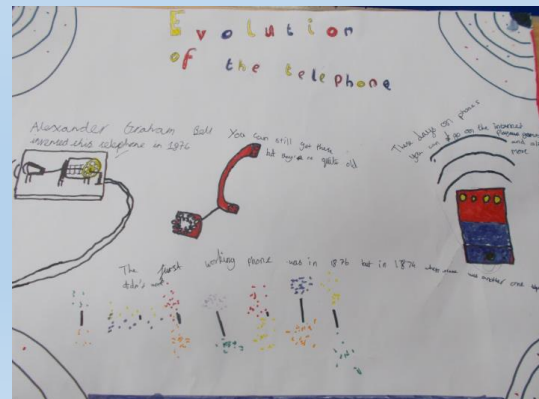 Evolution
of the telephone
Alexander Graham Bell
invented this telephone in 1876
You can still get these
but they're quite old
These days on phones
you can go on the internet
play games
and
more
The first working phone was in 1876 but in 1874 there was another one
didn't work